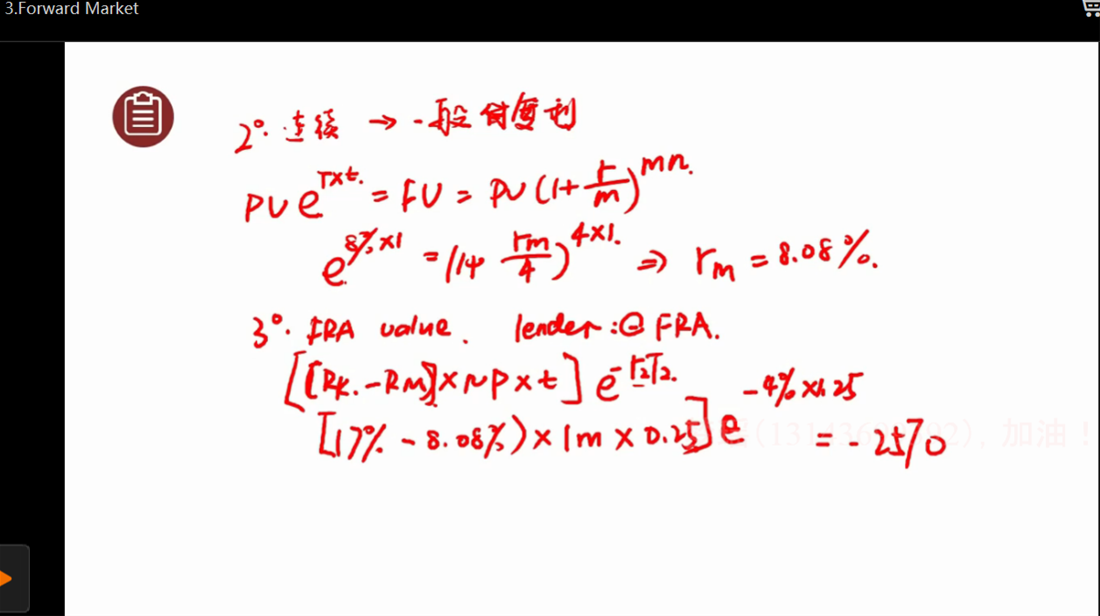 3.Forward Market
2°. 连续 → 一般付复利
PV e^{r×t.} = FV = PV (1+ r/m)^{mn.}
e^{8%×1} = (1+ rm/4)^{4×1.} ⇒ rm = 8.08%.
3°. FRA value. lender:⊖ FRA.
[[RK.-RM]×NP×t] e^{-r2T2.}
[(7%-8.08%)×1m×0.25] e^{-4%×1.25} = -2570
加油!